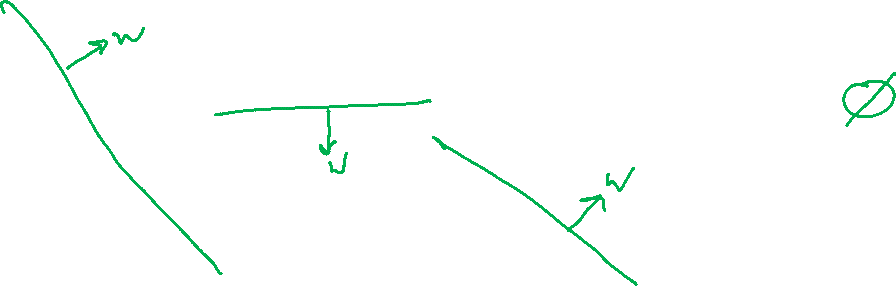 w
w
w
∅